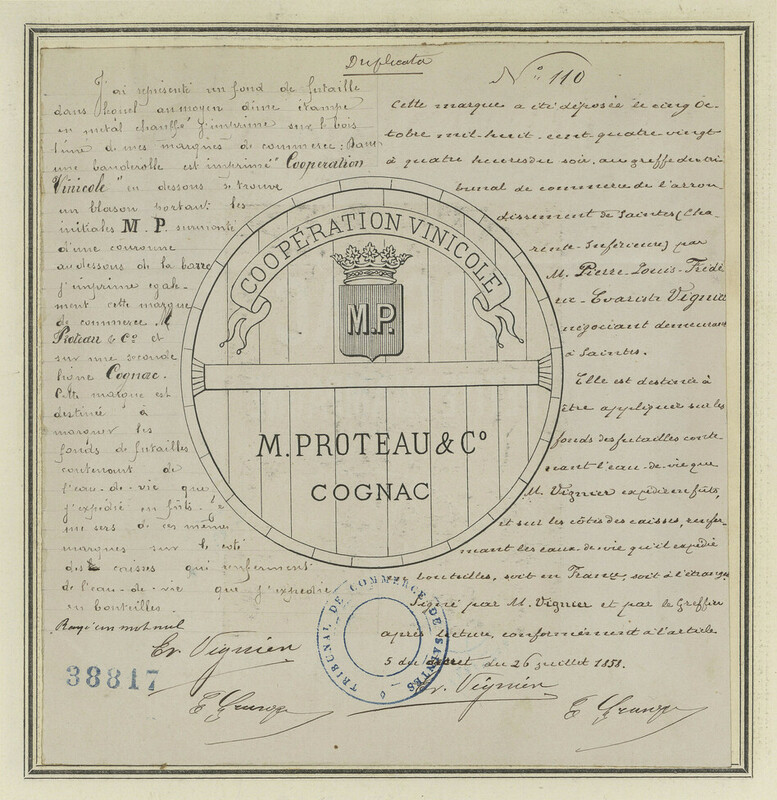 Duplicata
N° 110
J'ai représenté un fond de futaille
dans lequel au moyen d'une étampe
en métal chauffé j'imprime sur le bois
l'une de mes marques de commerce: Dans
une banderolle est imprimé "Coopération
Vinicole" en dessous se trouve
un blason portant les
initiales M.P. surmonté
d'une couronne
au dessous de la barre
j'imprime égale-
ment cette marque
de commerce M.
Proteau & Co et
sur une seconde
ligne Cognac.
Cette marque est
destinée à
marquer les
fonds de futailles
contenant de
l'eau-de-vie que
j'expédie en fûts. Je
me sers de ces même
marques sur le coté
des caisses qui renferment
de l'eau-de-vie que j'expédie
en bouteilles.
Rayé un mot nul
Ev. Vignier
38817
COOPÉRATION VINICOLE
M.P.
M. PROTEAU & Co
COGNAC
TRIBUNAL DE COMMERCE DE SAINTES
Cette marque a été déposée le cinq Oc-
tobre mil-huit-cent-quatre vingt
à quatre heures du soir, au greffe du tri
bunal de commerce de l'arron
dissement de Saintes (Cha-
rente-Inférieure) par
M. Pierre-Louis-Frédé
ric-Evariste Vignier
négociant demeurant
à Saintes.
Elle est destinée à
être appliquée sur les
fonds des futailles conte-
nant l'eau-de-vie que
M. Vignier expédie en fûts,
et sur les côtés des caisses, renfer-
mant les eaux-de-vie qu'il expédie
bouteilles, soit en France, soit à l'étranger
Signé par M. Vignier et par le Greffier
après lecture, conformément à l'article
5 du décret du 26 juillet 1858.
Ev. Vignier